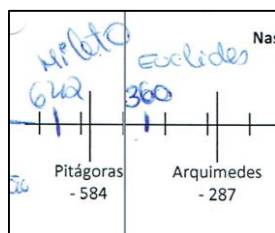 Mileto
Euclides
Nas
642
360
Pitágoras
- 584
Arquimedes
- 287